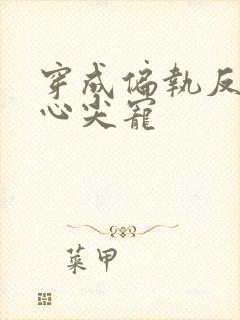 穿成偏执反
心尖宠
菜甲